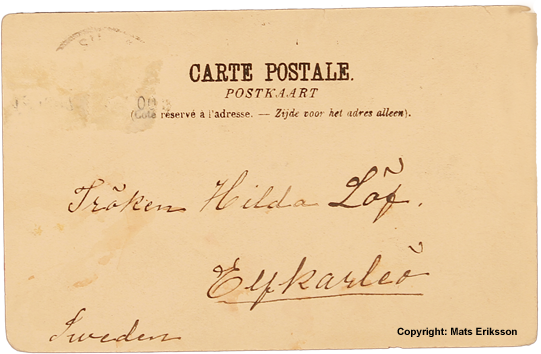 CARTE POSTALE.
POSTKAART
(Côté réservé à l'adresse. — Zijde voor het adres alleen).
Fröken Hilda Löf.
Elfkarleö
Sweden
Copyright: Mats Eriksson